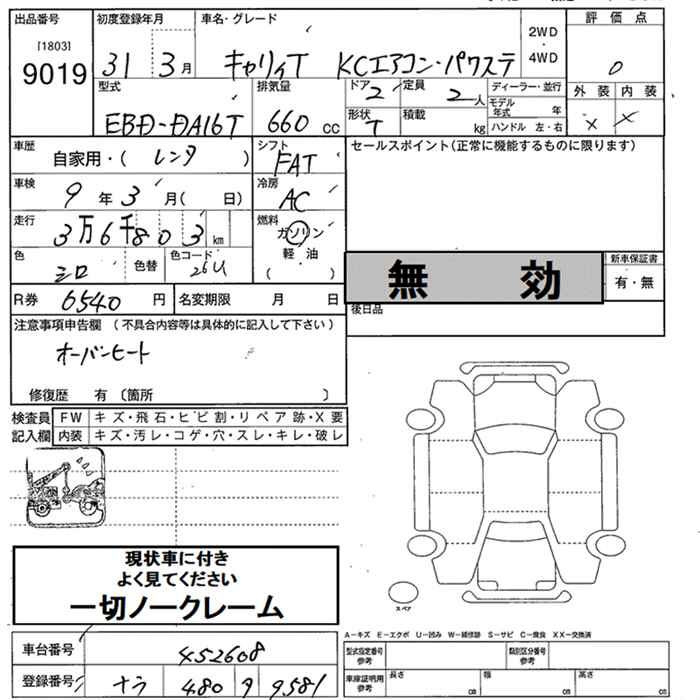 出品番号
[1803]
9019
初度登録年月
31 3月
車名・グレード
キャリィT KCエアコン・パワステ
2WD
・
4WD
評価点
0
外装 内装
× ×
型式
EBD-DA16T
排気量
660 cc
ドア 2
定員 2人
形状 T
積載 kg
ディーラー・並行
モデル年式 年
ハンドル 左・右
車歴
自家用・( レンタ )
シフト
FAT
車検
9年3月( 日)
冷房
AC
走行
3万6千803km
燃料
ガソリン
軽・油
( )
色
シロ
色替
色コード
26U
R券 6540円
名変期限 月 日
セールスポイント(正常に機能するものに限ります)
無効
新車保証書
有・無
後日品
注意事項申告欄 (不具合内容等は具体的に記入して下さい)
オーバーヒート
修復歴 有 〔箇所 〕
検査員記入欄
FW キズ・飛石・ヒビ割・リペア跡・X要
内装 キズ・汚レ・コゲ・穴・スレ・キレ・破レ
現状車に付き
よく見てください
一切ノークレーム
スペア
A-キズ E-エクボ U-凹み W-補修跡 S-サビ C-腐食 XX-交換済
車台番号 452608
登録番号 ナラ 480 ワ 9581
型式指定番号参考
類別区分番号参考
車庫証明用参考
長さ cm
幅 cm
高さ cm